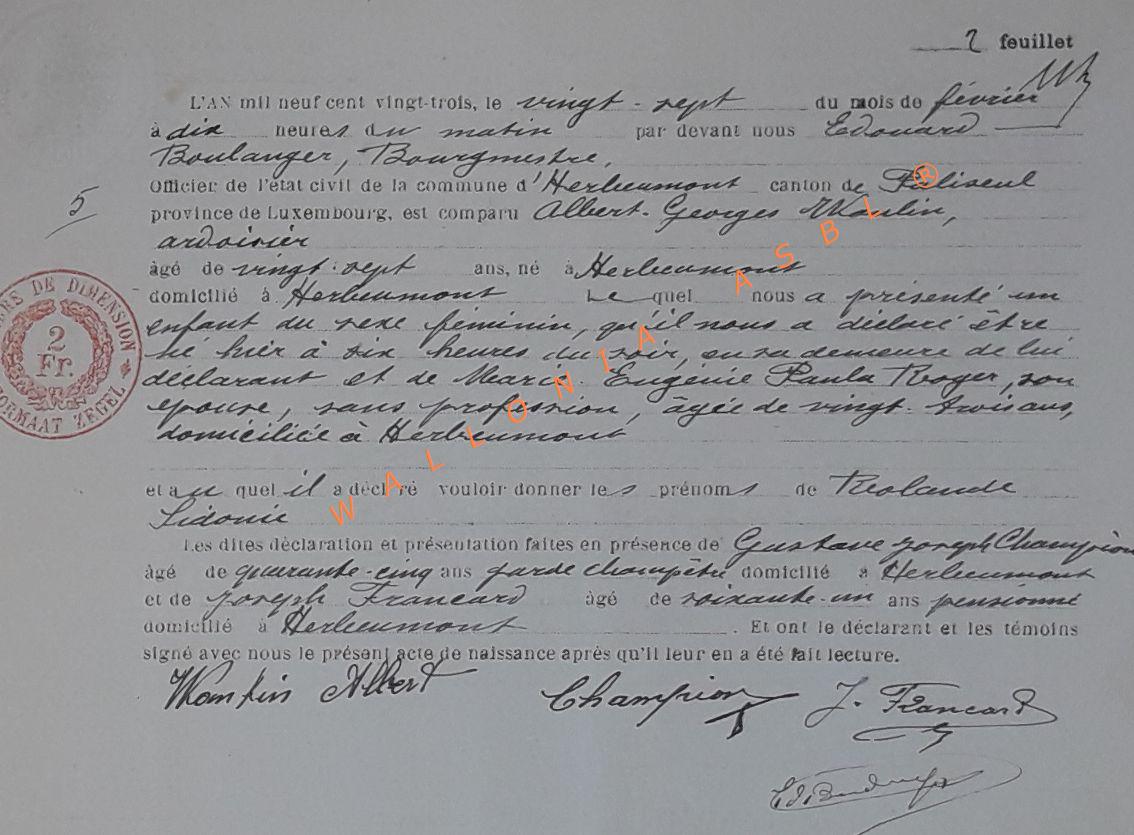 2 feuillet
L'AN mil neuf cent vingt-trois, le vingt-sept du mois de février
à dix heures du matin par devant nous Edouard
Boulanger, Bourgmestre,
Officier de l'état civil de la commune d'Herbeumont canton de Paliseul
5
province de Luxembourg, est comparu Albert-Georges
ardoisier
âgé de vingt-sept ans, né à Herbeumont
domicilié à Herbeumont Le quel nous a présenté un
enfant du sexe féminin, qu'il nous a déclaré être
né hier à six heures du soir, en sa demeure de lui
déclarant et de Marie Eugénie Paula Roger, son
épouse, sans profession, âgée de vingt-trois ans,
domiciliée à Herbeumont
et au quel il a déclaré vouloir donner les prénoms de Rolande
Sidonie
Les dites déclaration et présentation faites en présence de Gustave Joseph Champion
âgé de quarante-cinq ans garde champêtre domicilié à Herbeumont
et de Joseph Francard âgé de soixante-un ans pensionné
domicilié à Herbeumont. Et ont le déclarant et les témoins
signé avec nous le présent acte de naissance après qu'il leur en a été fait lecture.
Albert Champion J. Francard
DE DIMENSION
2
Fr.
FORMAAT ZEGEL
WALLONIA ASBL ®